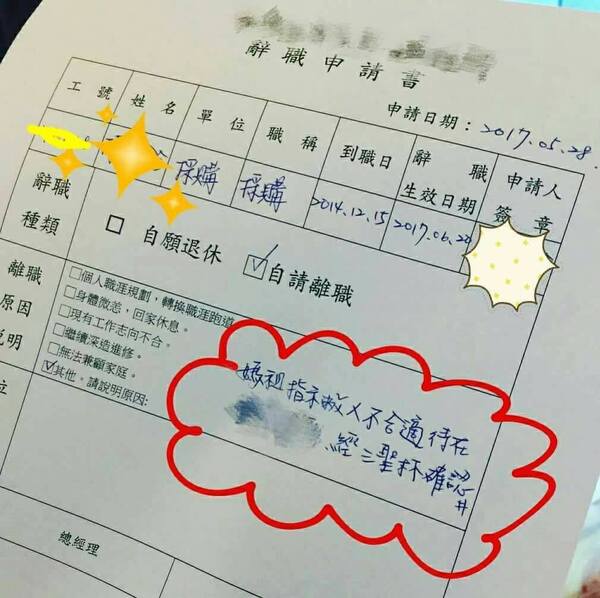 辭職申請書
申請日期：2017.05.28.
工號 姓名 單位 職稱 到職日 辭職生效日期 申請人簽章
採購 採購 2014.12.15 2017.06.20
辭職種類 □ 自願退休 ☑自請離職
離職
原因
說明
□個人職涯規劃，轉換職涯跑道
□身體微恙，回家休息。
□現有工作志向不合。
□繼續深造進修。
□無法兼顧家庭。
☑其他。請說明原因:
媽祖指示敝人不合適待在
經三聖杯確認#
位
總經理